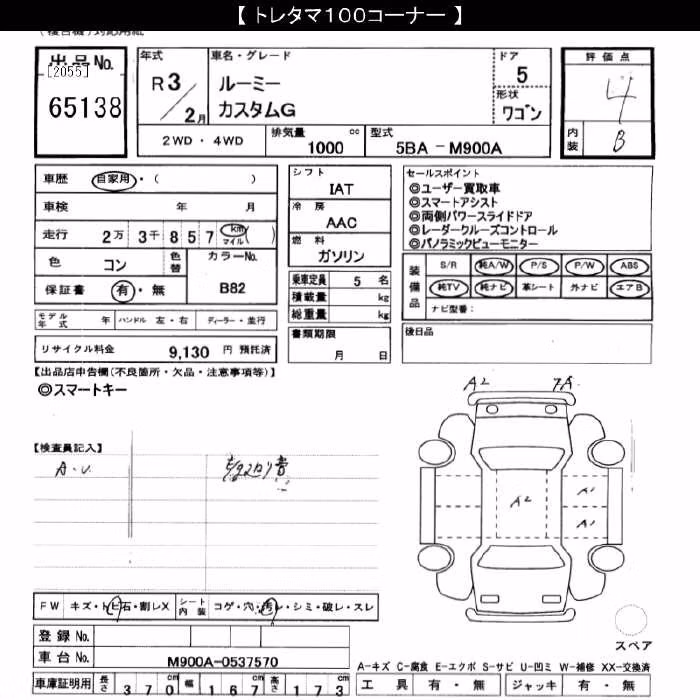 【 トレタマ100コーナー 】
出品No.
[2055]
65138
年式
R3／2月
車名・グレード
ルーミー
カスタムG
ドア
5
形状
ワゴン
2WD ・ 4WD
排気量 1000 cc
型式 5BA － M900A
評価点
4
内装 B
車歴 自家用・（ ）
車検 年 月
走行 2万 3千 8 5 7 km マイル（ ）
色 コン 色替
カラーNo.
B82
保証書 有・無
モデル年式 年 ハンドル 左・右 ディーラー・並行
リサイクル料金 9,130 円 預託済
シフト
IAT
冷房
AAC
燃料
ガソリン
乗車定員 5 名
積載量 kg
総重量 kg
書類期限
月 日
セールスポイント
◎ユーザー買取車
◎スマートアシスト
◎両側パワースライドドア
◎レーダークルーズコントロール
◎パノラミックビューモニター
装備品
S/R 純A/W P/S P/W ABS
純TV 純ナビ 革シート 外ナビ エアB
ナビ型番：
後日品
【出品店申告欄(不良箇所・欠品・注意事項等)】
◎スマートキー
【検査員記入】
A・U
A2
7A
A2
A1
A1
FW キズ・トビ石・割レX
シート内装 コゲ・穴・汚レ・シミ・破レ・スレ
登録No.
車台No. M900A-0537570
車庫証明用 長さ 370cm 幅 167cm 高さ 173cm
スペア
A-キズ C-腐食 E-エクボ S-サビ U-凹ミ W-補修 XX-交換済
工具 有・無 ジャッキ 有・無